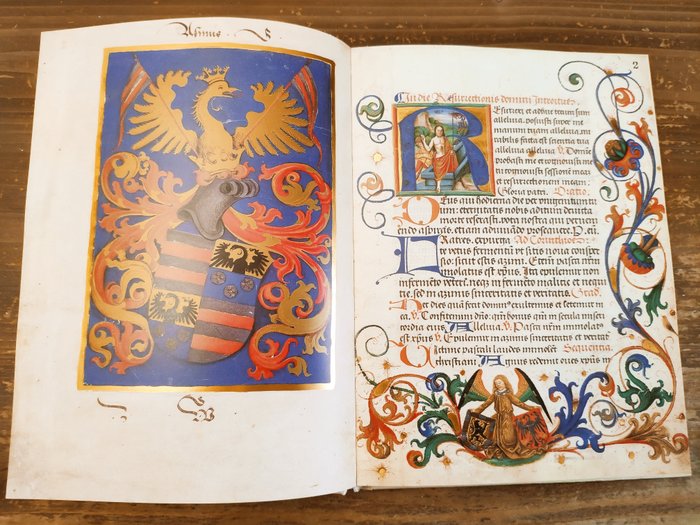 2
In die Resurrectionis domini introitus
Resurrexi, et adhuc tecum sum
alleluia. posuisti super me
manum tuam alleluia. mi
rabilis facta est scientia tua
alleluia alleluia V. Domie
probasti me et cognouisti me
tu cognouisti sessione mea
et resurrectionem meam.
Gloria patri. Oratio.
Deus qui hodierna die per vnigenitum
tuum: eternitatis nobis aditum deuicta
morte reserasti. vota nra que preueni
endo aspiras, etiam adiuuando prosequere. P.
Fratres. expurgate Ad Corinthios:
vetus fermentum vt sitis noua consper
sio: sicut estis azimi. Etem pasca nrm
imolatus est xpus. Ita epulemur non
in fermeto veteri. neqz in fermeto malicie et nequi
tie, sed in azimis sinceritatis et veritatis. Grad.
Hec dies qua fecit dominus exultemus et letemur in
ea. V. Confitemini dno: quonia bonus qm in secula mi
sericordia eius. Alleluia. V. Pasca nrm imola
tus est xpus V. Epulemur in azimis sinceritatis et veritatis
Victime pascali laudes immolet Sequentia
christiani Agnus redemit oues xpus in